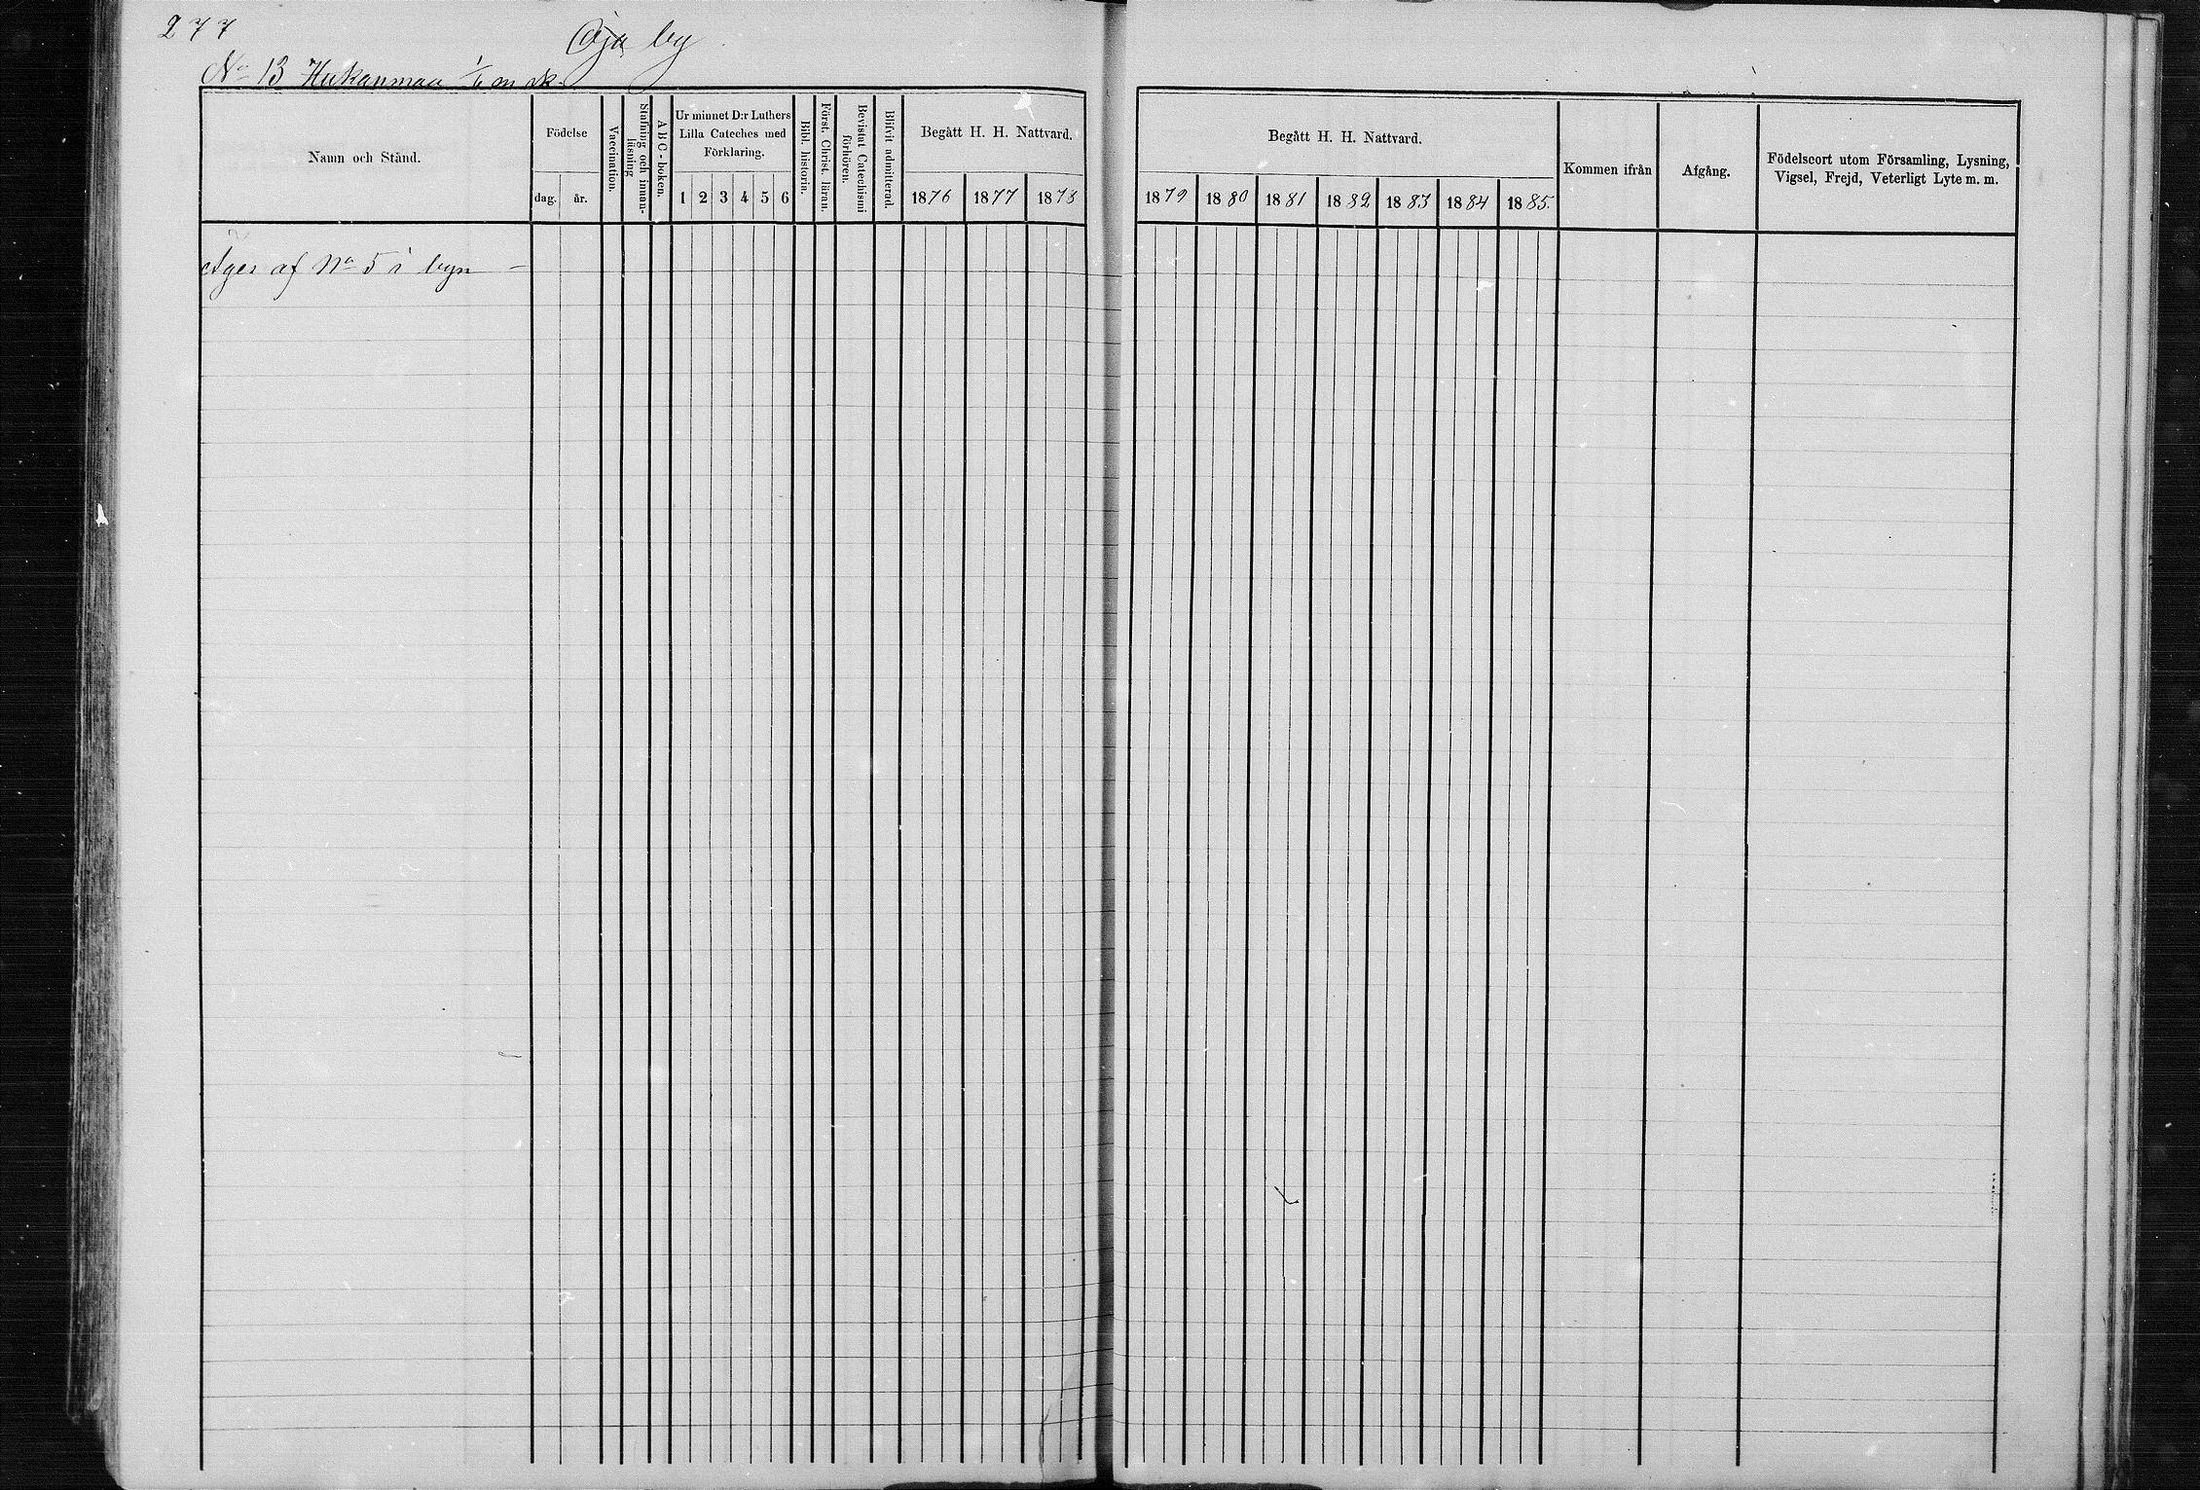 277
Oja by
No 13 Hukanmaa 1/6 m sk.
Namn och Stånd.
Födelse
dag. år.
Vaccination.
Stafning och innan-
läsning
ABC-boken.
Ur minnet D:r Luthers
Lilla Cateches med
Förklaring.
1 2 3 4 5 6
Bibl. historie.
Först. Christ. läran.
Bevistat Catechismi
förhören.
Blifvit admitterad.
Begått H. H. Nattvard.
1876 1877 1878
Begått H. H. Nattvard.
1879 1880 1881 1882 1883 1884 1885.
Kommen ifrån
Afgång.
Födelseort utom Församling, Lysning,
Vigsel, Frejd, Veterligt Lyte m. m.
Äges af No 5 i byn